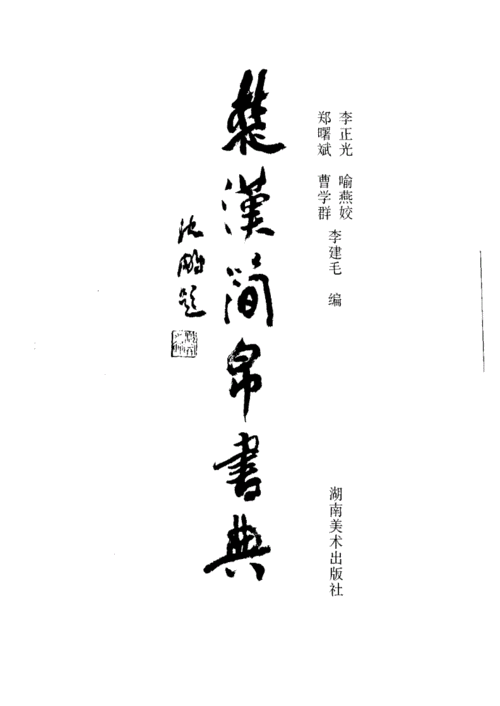 李正光 喻燕姣
郑曙斌 曹学群 李建毛 编
湖南美术出版社
楚漢简帛書典
沈鹏题